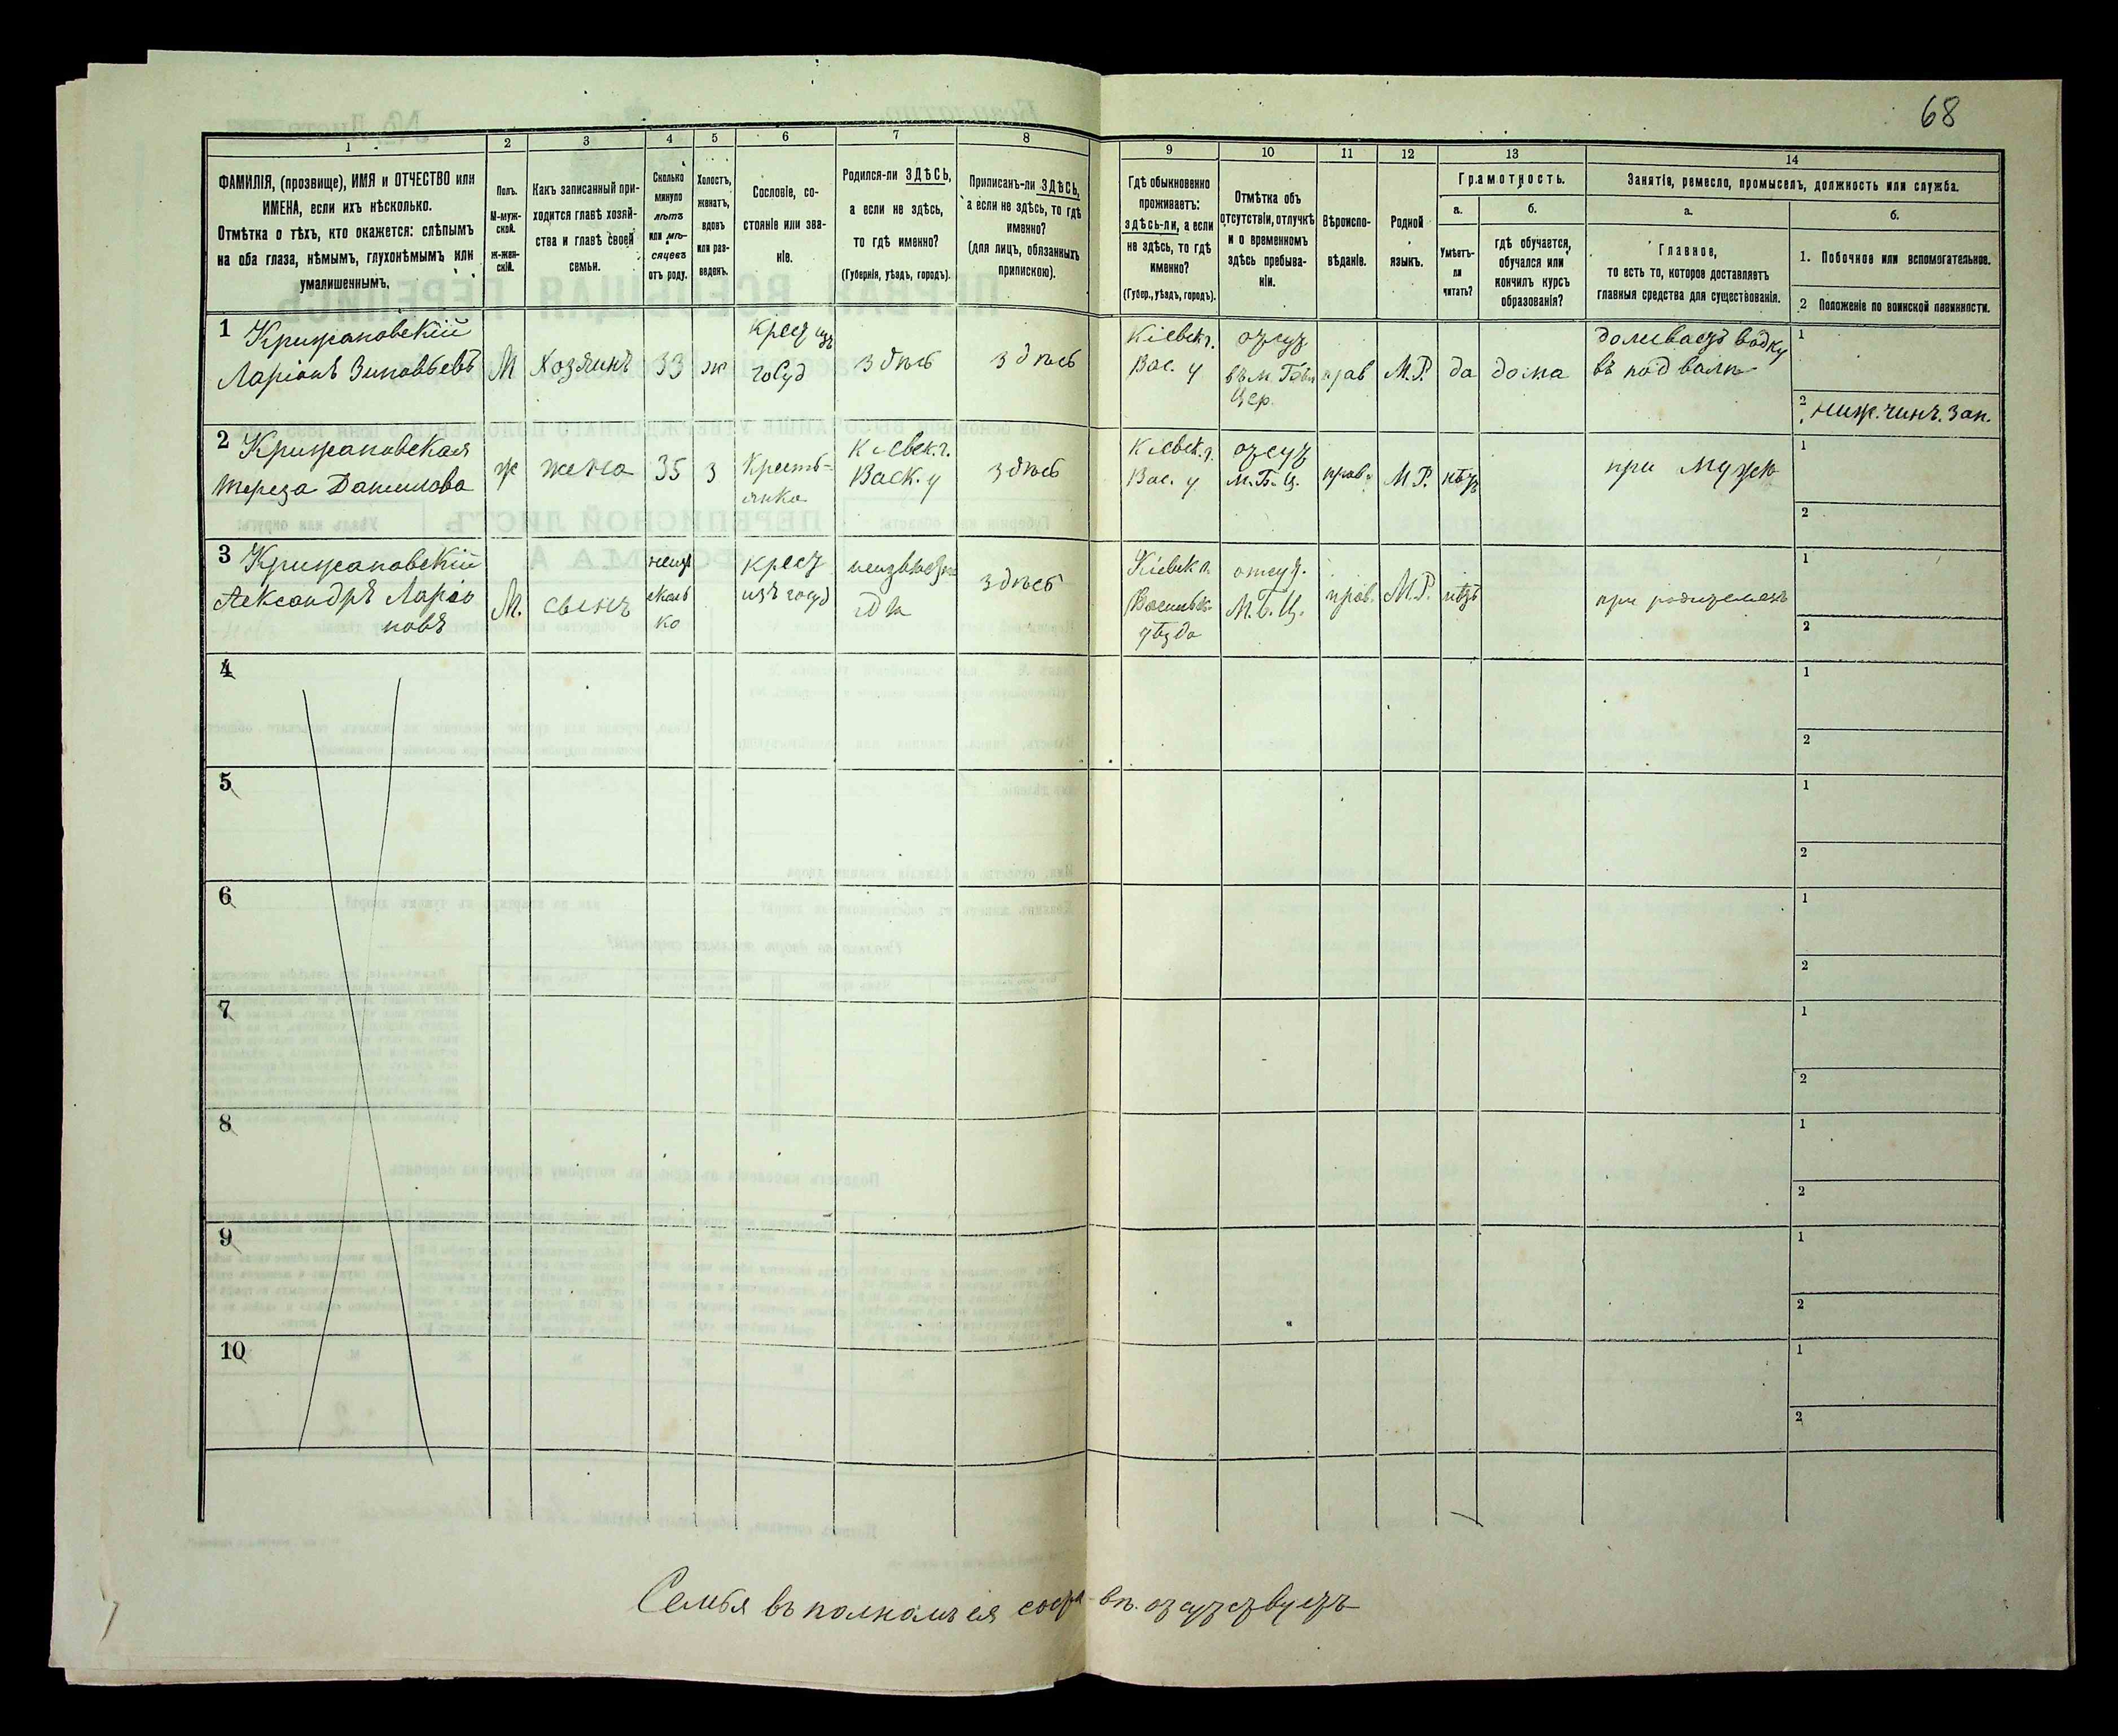 68
1 2 3 4 5 6 7 8 9 10 11 12 13 14
ФАМИЛІЯ, (прозвище), ИМЯ и ОТЧЕСТВО или
ИМЕНА, если ихъ нѣсколько.
Отмѣтка о тѣхъ, кто окажется: слѣпымъ
на оба глаза, нѣмымъ, глухонѣмымъ или
умалишеннымъ.
Полъ.
М-муж-
ской.
Ж-жен-
скій.
Какъ записанный при-
ходится главѣ хозяй-
ства и главѣ своей
семьи.
Сколько
минуло
лѣтъ
или мѣ-
сяцевъ
отъ роду.
Холостъ,
женатъ,
вдовъ
или раз-
веденъ.
Сословіе, со-
стояніе или зва-
ніе.
Родился-ли ЗДѢСЬ,
а если не здѣсь,
то гдѣ именно?
(Губернія, уѣздъ, городъ).
Приписанъ-ли ЗДѢСЬ,
а если не здѣсь, то гдѣ
именно?
(для лицъ, обязанныхъ
припискою).
Гдѣ обыкновенно
проживаетъ:
здѣсь-ли, а если
не здѣсь, то гдѣ
именно?
(Губер., уѣздъ, городъ).
Отмѣтка объ
отсутствіи, отлучкѣ
и о временномъ
здѣсь пребыва-
ніи.
Вѣроиспо-
вѣданіе.
Родной
языкъ.
Грамотность.
а.
Умѣетъ-
ли
читать?
б.
гдѣ обучается,
обучался или
кончилъ курсъ
образованія?
Занятіе, ремесло, промыселъ, должность или служба.
а.
Главное,
то есть то, которое доставляетъ
главныя средства для существованія.
б.
1. Побочное или вспомогательное.
2 Положеніе по воинской повинности.
1 Крижановскій
Ларіонъ Зиновьевъ
М
Хозяинъ
33
ж
Крест изъ
госуд
здѣсь
здѣсь
Кіевск г.
Вас. у
отсут
въ м.
Цер.
прав
М.Р.
да
дома
доливаетъ водку
въ подвалѣ
1
2 ниж. чинъ. зап.
2 Крижановская
Тереза Данилова
ж
жена
35
з
Кресть-
янка
Кіевск. г.
Васк. у
здѣсь
Кіевск. г.
Вас. у
отсут
м. Б. Ц.
прав.
М.Р.
нѣтъ
при мужѣ
1
2
3 Крижановскій
Александръ Ларіо
новъ
М.
сынъ
неизв
сколь
ко
крест
изъ госуд
неизвѣстно
гдѣ
здѣсь
Кіевск г.
Васильк.
уѣзда
отсут.
М. Б. Ц.
прав.
М.Р.
нѣтъ
при родителяхъ
1
2
4
1
2
5
1
2
6
1
2
7
1
2
8
1
2
9
1
2
10
1
2
Семья въ полномъ ея соста-вѣ. отсутствуетъ